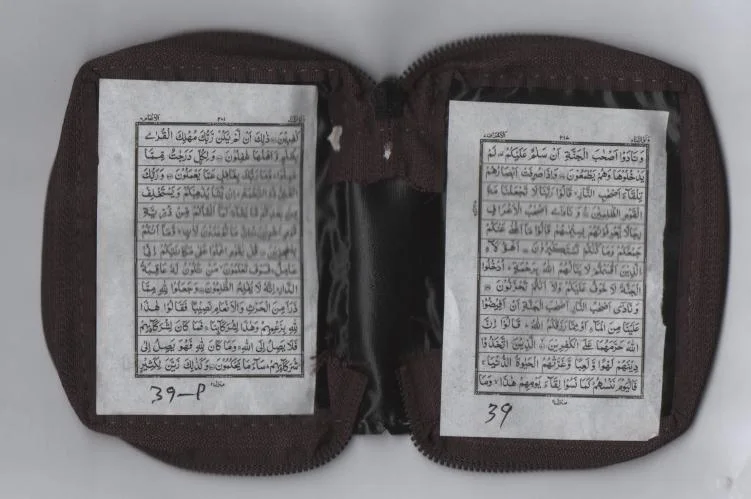 ۲۱۷
وَنَادَوْا اَصْحٰبَ الْجَنَّةِ اَنْ سَلٰمٌ عَلَيْكُمْ لَمْ
يَدْخُلُوْهَا وَهُمْ يَطْمَعُوْنَ وَاِذَا صُرِفَتْ اَبْصَارُهُمْ
تِلْقَآءَ اَصْحٰبِ النَّارِ قَالُوْا رَبَّنَا لَا تَجْعَلْنَا مَعَ
الْقَوْمِ الظّٰلِمِيْنَ وَنَادٰٓى اَصْحٰبُ الْاَعْرَافِ
رِجَالًا يَّعْرِفُوْنَهُمْ بِسِيْمٰهُمْ قَالُوْا مَآ اَغْنٰى عَنْكُمْ
جَمْعُكُمْ وَمَا كُنْتُمْ تَسْتَكْبِرُوْنَ اَهٰٓؤُلَآءِ
الَّذِيْنَ اَقْسَمْتُمْ لَا يَنَالُهُمُ اللّٰهُ بِرَحْمَةٍ اُدْخُلُوا
الْجَنَّةَ لَا خَوْفٌ عَلَيْكُمْ وَلَآ اَنْتُمْ تَحْزَنُوْنَ
وَنَادٰٓى اَصْحٰبُ النَّارِ اَصْحٰبَ الْجَنَّةِ اَنْ اَفِيْضُوْا
عَلَيْنَا مِنَ الْمَآءِ اَوْ مِمَّا رَزَقَكُمُ اللّٰهُ قَالُوْٓا اِنَّ
اللّٰهَ حَرَّمَهُمَا عَلَى الْكٰفِرِيْنَ الَّذِيْنَ اتَّخَذُوْا
دِيْنَهُمْ لَهْوًا وَّلَعِبًا وَّغَرَّتْهُمُ الْحَيٰوةُ الدُّنْيَا
فَالْيَوْمَ نَنْسٰىهُمْ كَمَا نَسُوْا لِقَآءَ يَوْمِهِمْ هٰذَا وَمَا
39
۲۰۱
ذٰلِكَ اَنْ لَّمْ يَكُنْ رَّبُّكَ مُهْلِكَ الْقُرٰى
بِظُلْمٍ وَّاَهْلُهَا غٰفِلُوْنَ وَلِكُلٍّ دَرَجٰتٌ مِّمَّا
عَمِلُوْا وَمَا رَبُّكَ بِغَافِلٍ عَمَّا يَعْمَلُوْنَ وَرَبُّكَ
الْغَنِيُّ ذُو الرَّحْمَةِ اِنْ يَّشَاْ يُذْهِبْكُمْ وَيَسْتَخْلِفْ
مِنْ بَعْدِكُمْ مَّا يَشَآءُ كَمَآ اَنْشَاَكُمْ مِّنْ ذُرِّيَّةِ
قَوْمٍ اٰخَرِيْنَ اِنَّ مَا تُوْعَدُوْنَ لَاٰتٍ وَّمَآ اَنْتُمْ
بِمُعْجِزِيْنَ قُلْ يٰقَوْمِ اعْمَلُوْا عَلٰى مَكَانَتِكُمْ اِنِّيْ
عَامِلٌ فَسَوْفَ تَعْلَمُوْنَ مَنْ تَكُوْنُ لَهٗ عَاقِبَةُ
الدَّارِ اِنَّهٗ لَا يُفْلِحُ الظّٰلِمُوْنَ وَجَعَلُوْا لِلّٰهِ مِمَّا
ذَرَاَ مِنَ الْحَرْثِ وَالْاَنْعَامِ نَصِيْبًا فَقَالُوْا هٰذَا
لِلّٰهِ بِزَعْمِهِمْ وَهٰذَا لِشُرَكَآئِنَا فَمَا كَانَ لِشُرَكَآئِهِمْ
فَلَا يَصِلُ اِلَى اللّٰهِ وَمَا كَانَ لِلّٰهِ فَهُوَ يَصِلُ اِلٰى
شُرَكَآئِهِمْ سَآءَ مَا يَحْكُمُوْنَ وَكَذٰلِكَ زَيَّنَ لِكَثِيْرٍ
39-P